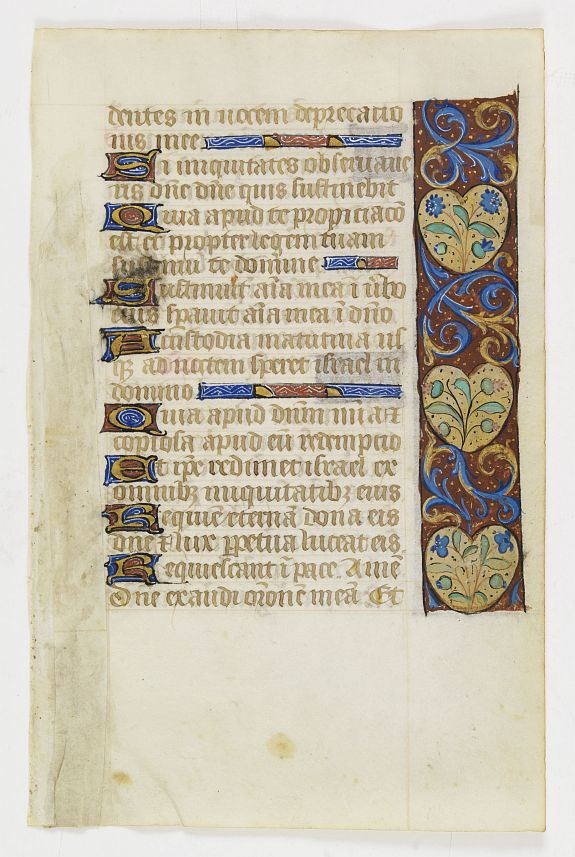 dentes in uocem deprecatio
nis mee
Si iniquitates obseruaue
ris dne dne quis sustinebit
Quia apud te propiciacō
est et propter legem tuam
sustinui te domine
Sustinuit aīa mea ī ūbo
eius sperauit aīa mea ī dnō
A custodia matutina us
q̄ ad noctem speret israel in
domino
Quia apud dnm mīa et
copiosa apud eū redempcio
Et ipē redimet israel ex
omnibꝫ iniquitatibꝫ eius
Requiē eternā dona eis
dnē et lux ꝑpetua luceat eis
Requiescant ī pace. Amē
Dnē exaudi orōnē meā. Et